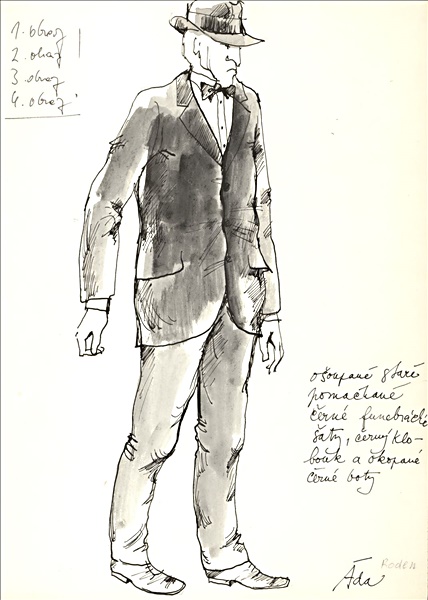 1. obraz
2. obraz
3. obraz
4. obraz
ošoupané staré
pomačkané
černé funebrácké
šaty, černý klo-
bouk a okopané
černé boty
Roden
Áda